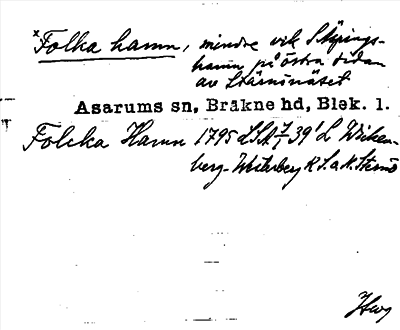 x Folka hamn, mindre vik S Köpings-
hamn på östra sidan
av Stärnönäset
Asarums sn, Bräkne hd, Blek. l.
Folcka Hamn 1795 LSA 39' L Wicken-
berg-Westerberg K S. a. N. Sternö
Hwg